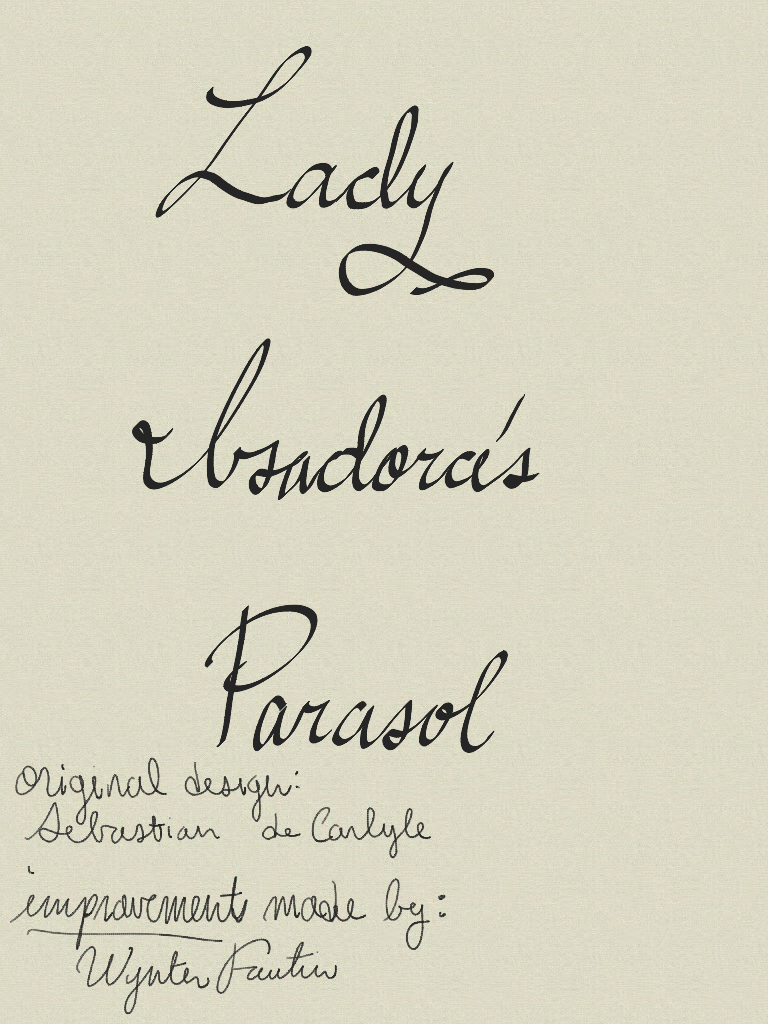 Lady
Isadora's
Parasol
Original design:
Sebastian de Carlyle
improvements made by:
Wynter